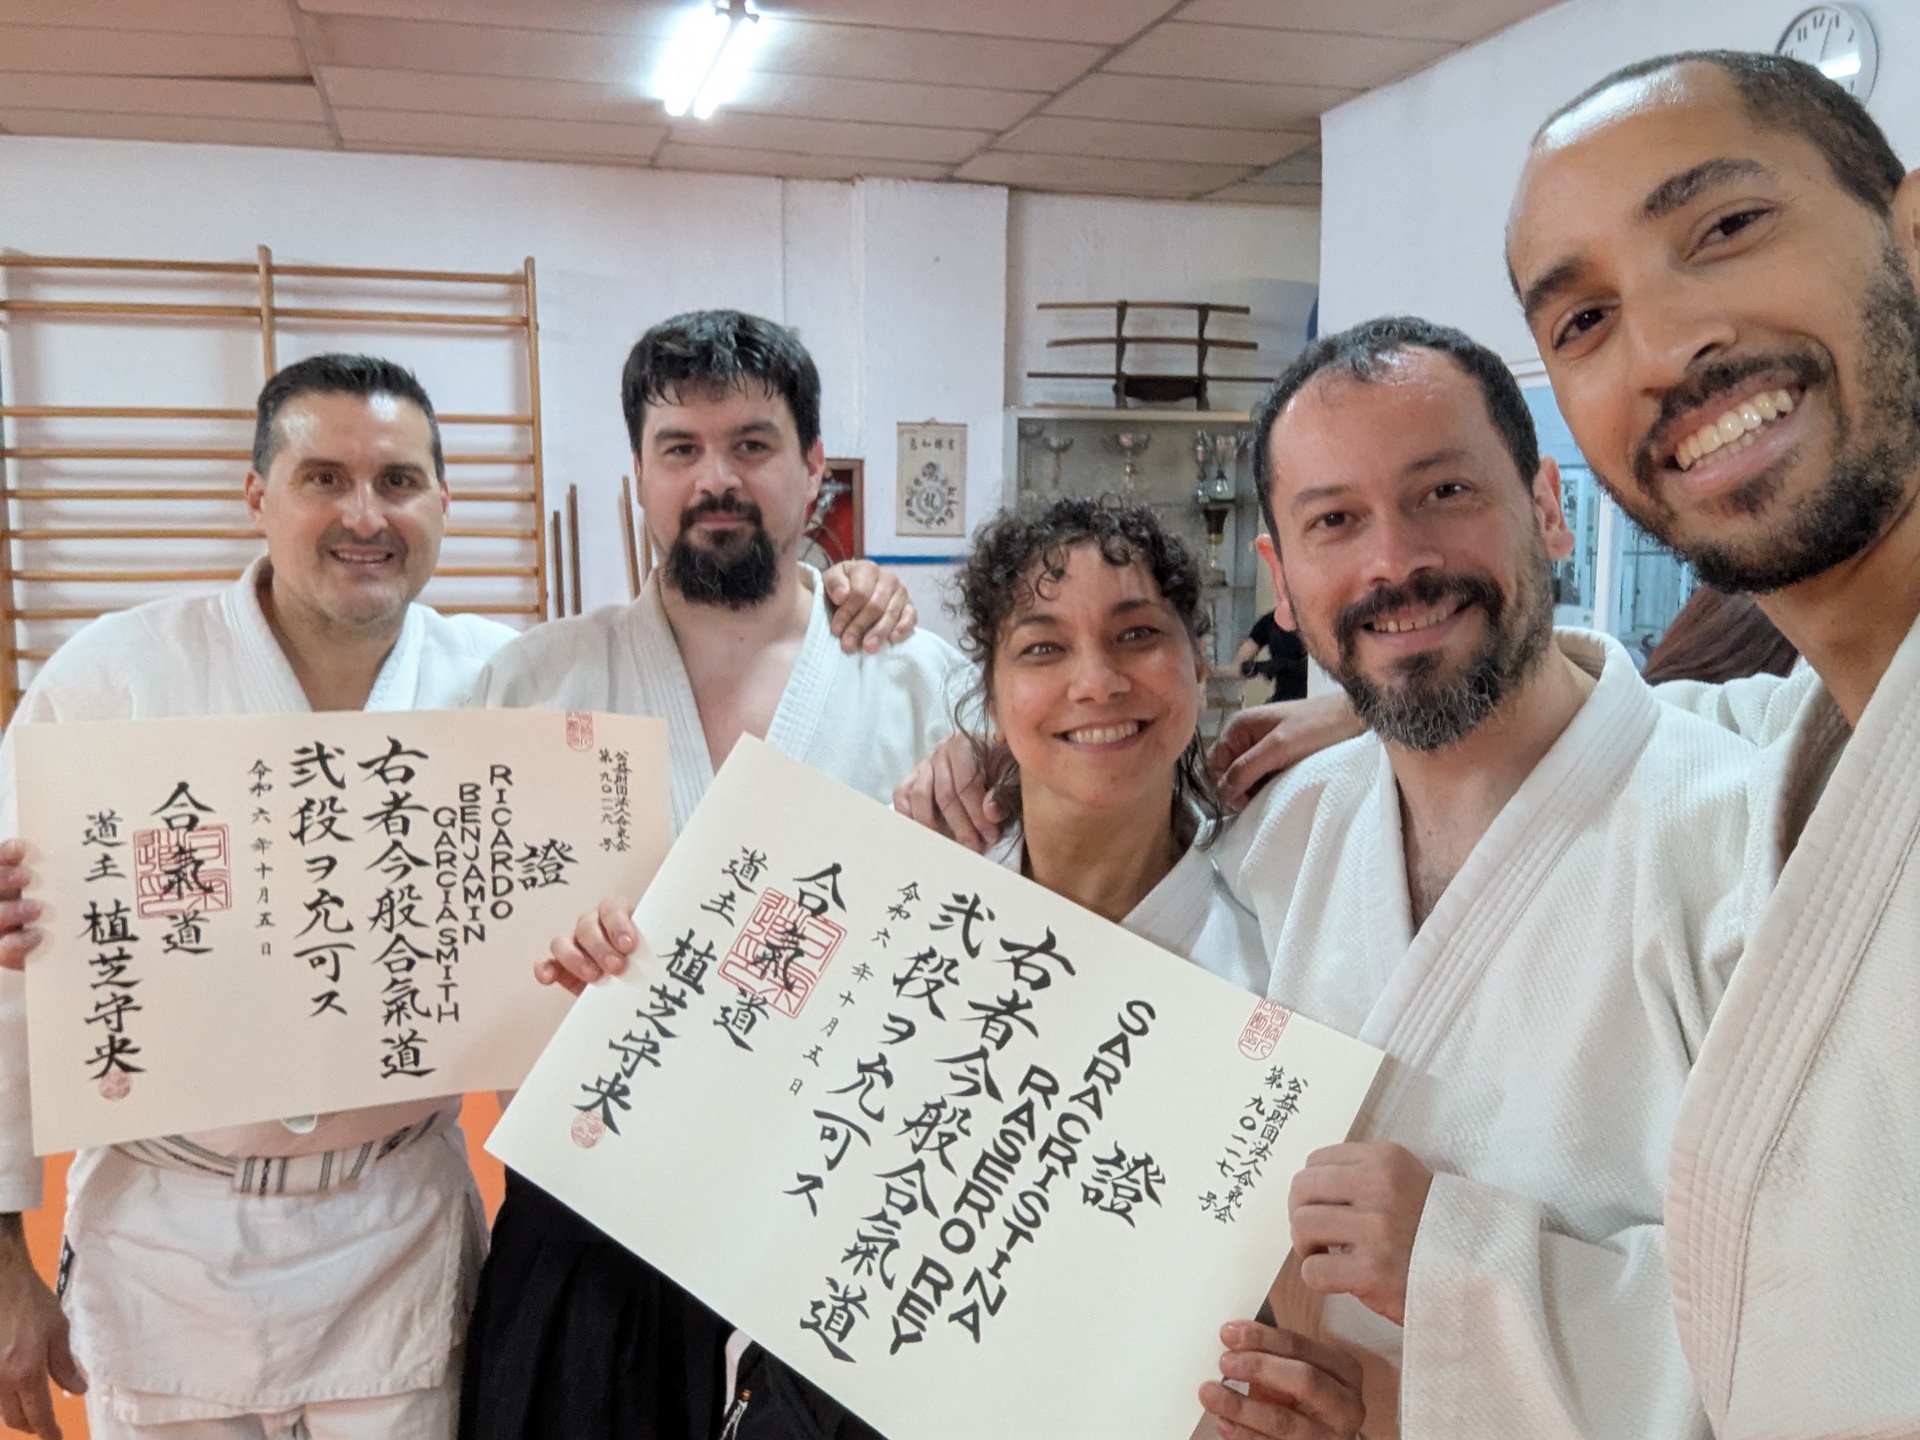 公益財団法人合氣会
第九〇一一六号
證
RICARDO
BENJAMIN
GARCIA SMITH
右者今般合氣道
弐段ヲ允可ス
令和六年十月五日
合氣道
道主 植芝守央
公益財団法人合氣会
第九〇一一七号
證
SARA CRISTINA
RASERO REY
右者今般合氣道
弐段ヲ允可ス
令和六年十月五日
合氣道
道主 植芝守央